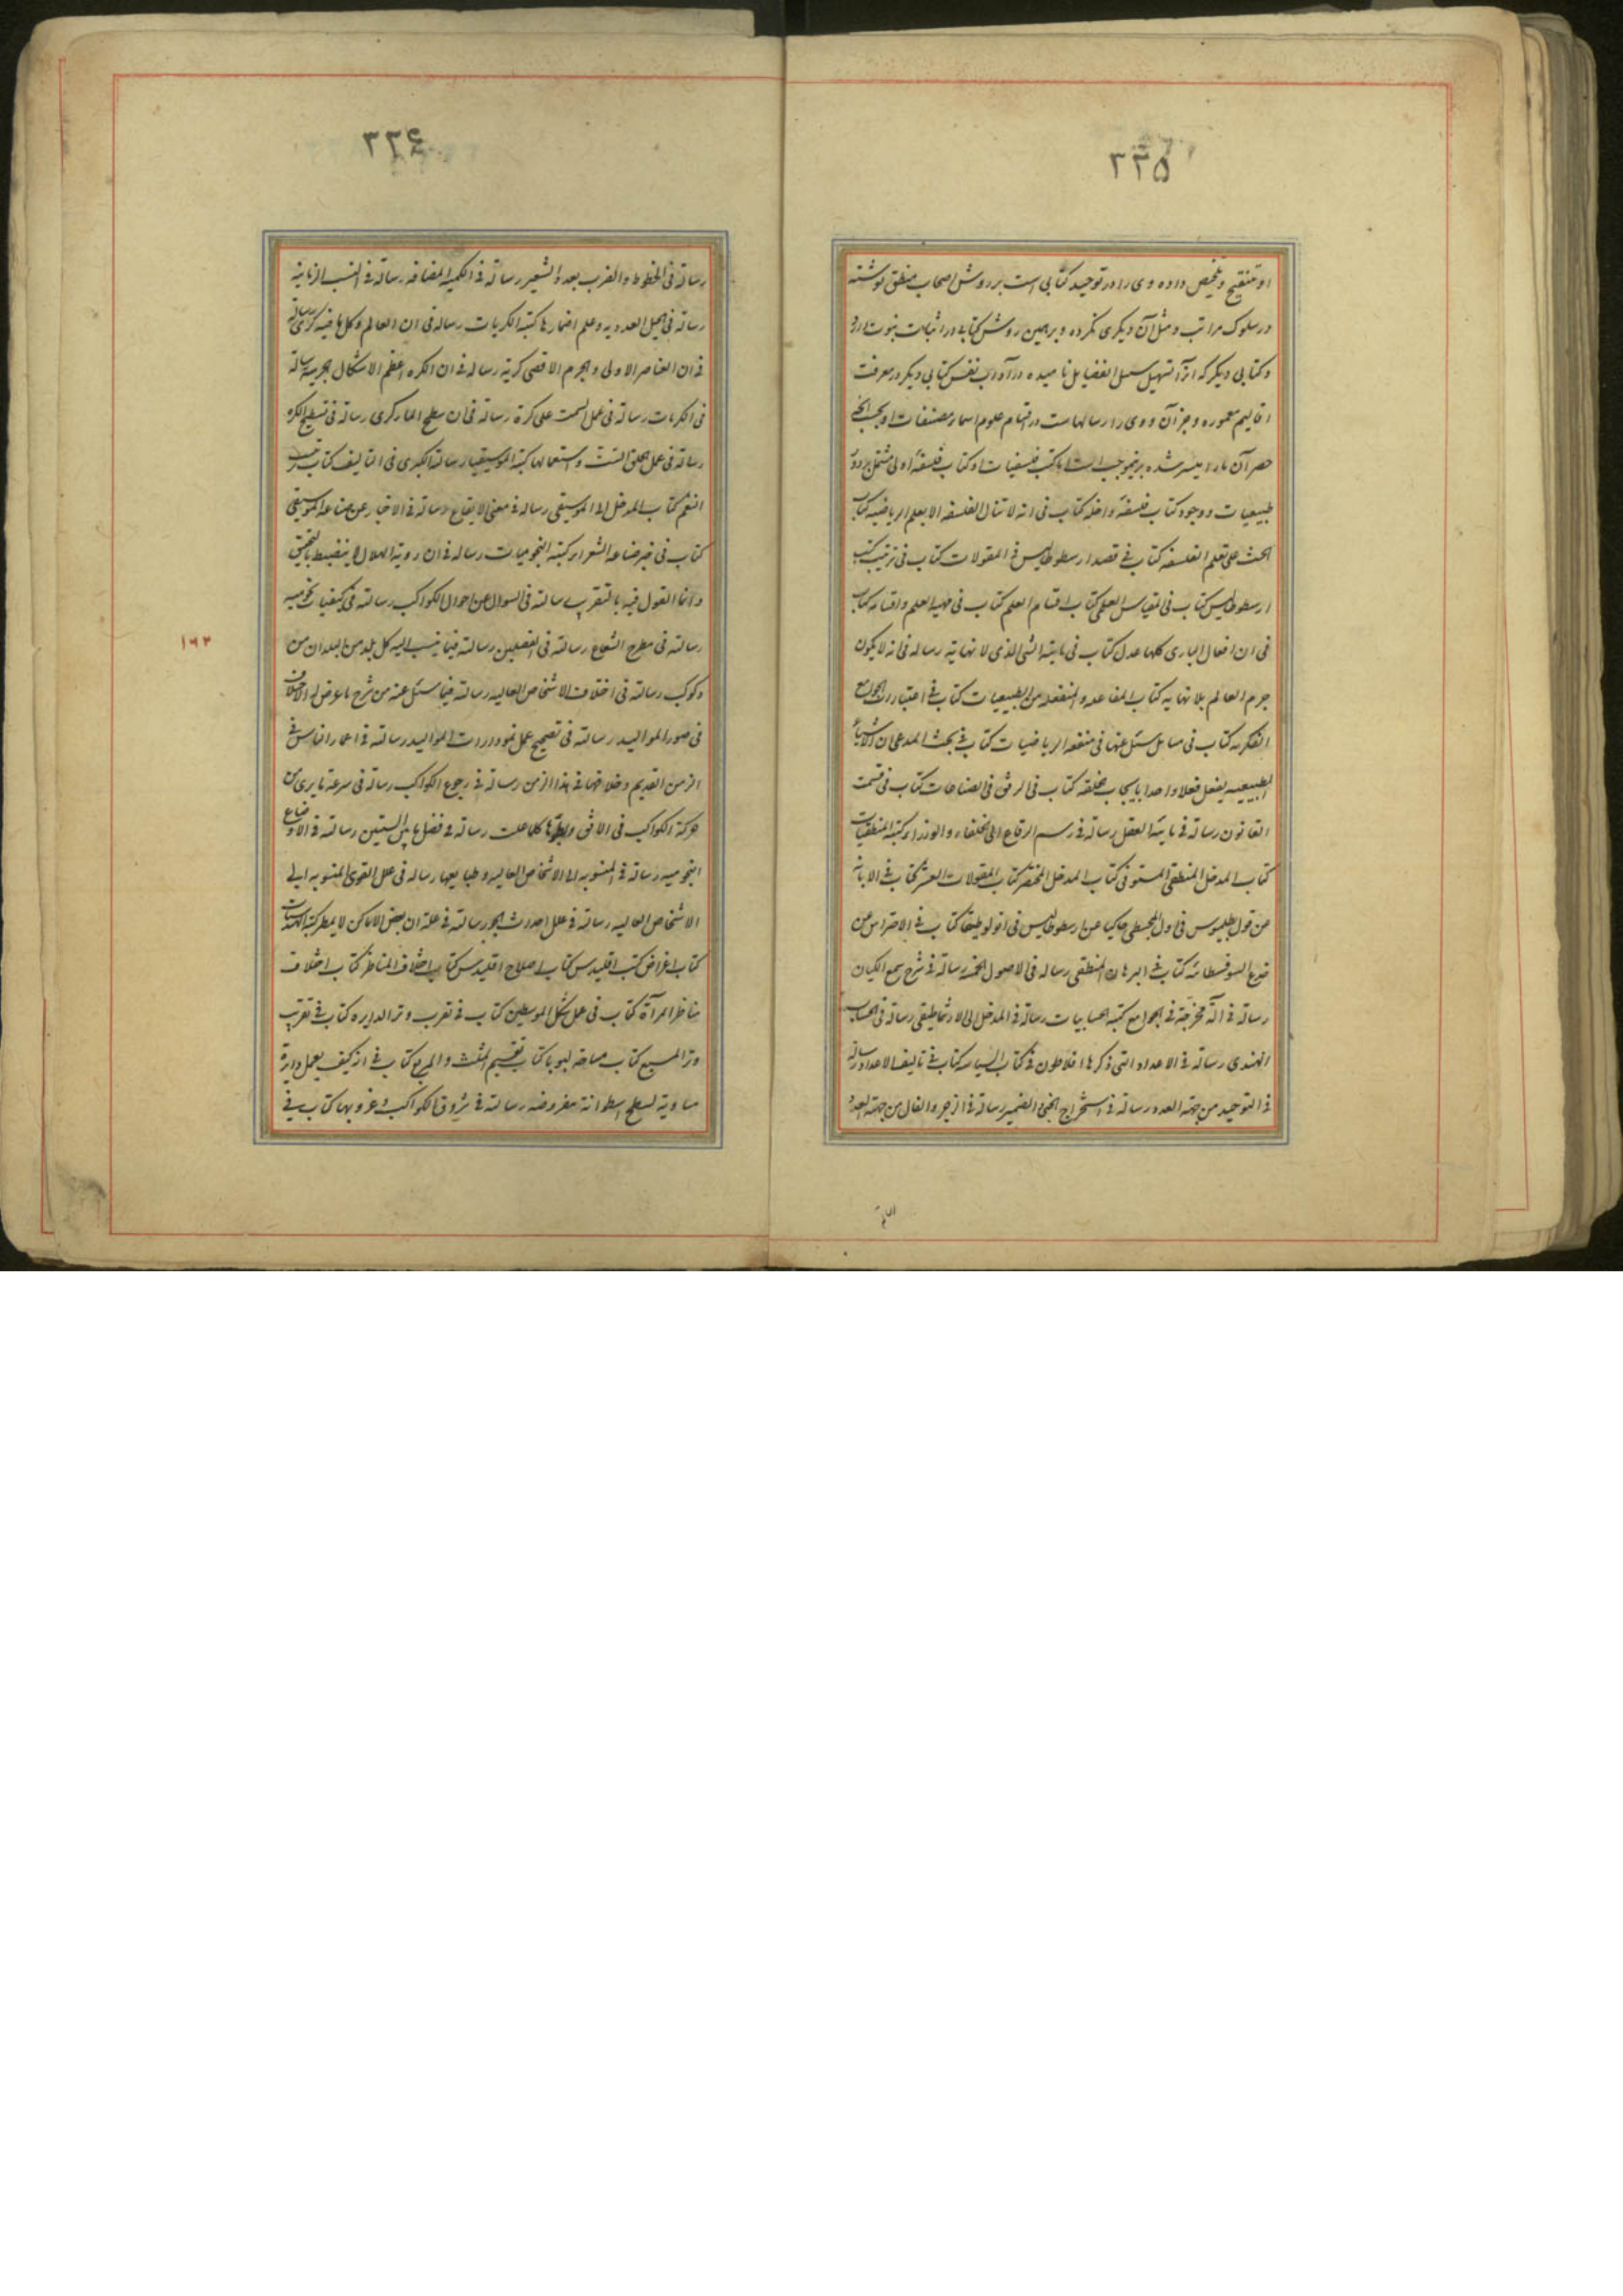 ۳۳۵
او تنقیح و تلخیص داده و وی را در توحید کتابی است بر روش اصحاب منطق نوشته
در سلوک مراتب و مثل آن دیگری نکرده و بر همین روش کتابی در اثبات نبوت دارد
و کتابی دیگر که آنرا تسهیل سبیل الفضایل نامیده در آداب نفس کتابی دیگر در معرفت
اقالیم معموره و جز آن و وی را رسالهاست در تمام علوم اسمار مصنفات او بحسب آنچه
حصر آن ما را میسر شده برینموجب است اما کتب فلسفیات او کتاب فلسفه اولی مشتمل بر دون
طبیعیات و وجود کتاب فلسفه داخله کتاب فی انه لا تنال الفلسفه الا بعلم الریاضیه کتاب
الحث علی تعلم الفلسفه کتاب فی قصد ارسطوطالیس فی المقولات کتاب فی ترتیب کتب
ارسطوطالیس کتاب فی المقیاس العلمی کتاب اقسام العلم کتاب فی مهیه العلم و اقسامه کتاب
فی ان افعال الباری کلها عدل کتاب فی مایته الشی الذی لا نهایة رساله فی انه لا یکون
جرم العالم بلا نهایه کتاب المفاعله و المنفعله من الطبیعیات کتاب فی اعتبارات الجوامع
الفکریه کتاب فی مسایل سئل عنها فی منفعه الریاضیات کتاب فی بحث المدعی ان الاشیاء
الطبیعیه یفعل فعلا واحدا بایجاب خلقه کتاب فی الرفق فی الصناعات کتاب فی قسمت
القانون رسالة فی مایته العقل رسالة فی رسم الرقاع الی الخلفاء و الوزراء کتبه المنطقیات
کتاب المدخل المنطقی المستوفی کتاب المدخل المختصر کتاب المقولات العشر کتاب فی الابانه
من قول بطلمیوس فی اول المجسطی حاکیا عن ارسطوطالیس فی انولوطیقا کتاب فی الاحتراس من
خدع السوفسطائیه کتاب فی البرهان المنطقی رساله فی الاصول الخمسه رسالة فی شرح سمع الکیان
رسالة فی آلة مخرجة فی الجوامع کتبه الحسابیات رسالة فی المدخل الی الارثماطیقی رسالة فی الحساب
الهندی رسالة فی الاعداد التی ذکرها افلاطون فی کتاب السیاسه کتاب فی تالیف الاعداد رسالة
فی التوحید من جهة العدد رسالة فی استخراج الخبی الضمیر رسالة فی الزجر و الفال من جهة العدد
۳۳۶
رسالة فی الخطوط و الضرب بعدد الشعیر رسالة فی الکمیه المضافه رسالة فی النسب الزمانیه
رسالة فی الحیل العددیه و علم اضمارها کتبه الکریات رساله فی ان العالم و کل ما فیه کری رسالة
فی ان العناصر الاولی و الجرم الاقصی کریة رساله فی ان الکره اعظم الاشکال الجرمیه رسالة
فی الکریات رسالة فی عمل السمت علی کرة رسالة فی ان سطح الماء کری رسالة فی تسطیح الکره
رسالة فی عمل الحلق الست و استعمالها کتبه الموسیقیا رسالة الکبری فی التالیف کتاب ترتیب
النغم کتاب المدخل الی الموسیقی رساله فی معنی الایقاع رسالة فی الاخبار عن صناعه الموسیقی
کتاب فی خبر صناعه الشعراء کتبه النجومیات رساله فی ان رویة الهلال لا ینضبط بالتحقیق
و انما القول فیه بالتقریب رسالة فی السوال عن احوال الکواکب رسالة فی کیفیات نجومیه
رسالة فی مطرح الشعاع رسالة فی الفصلین رسالة فیما ینسب الیه کل بلد من البلدان من
۱۶۳
و کوکب رسالة فی اختلاف الاشخاص العالیه رسالة فیما سئل عنه من شرح ما عرض له الاختلاف
فی صور الموالید رسالة فی تصحیح عمل نمودارات الموالید رسالة فی اعمار الناس فی
الزمن القدیم و خلافها فی هذا الزمن رسالة فی رجوع الکواکب رسالة فی سرعة ما یری من
حرکة الکواکب فی الافق و ابطؤها کلما علت رسالة فی فصل ما بین السنین رسالة فی الاوضاع
النجومیه رسالة فی المنسوبه الی الاشخاص العالیه و طبایعها رساله فی علل القوی المنسوبه الی
الاشخاص العالیه رسالة فی علل احداث الجو رسالة فی علة ان بعض الاماکن لا یمطر کتبه الهندسیات
کتاب اغراض کتب اقلیدس کتاب اصلاح اقلیدس کتاب اختلاف المناظر کتاب اختلاف
مناظر المرآة کتاب فی عمل شکل الموسطین کتاب فی تقرب وتر الدایره کتاب فی تقریب
وتر المسبع کتاب مساحه کتاب تقسیم المثلث و المربع کتاب فی ان کیف یعمل دایرة
مساویة لسطح اسطوانة مفروضه رسالة فی شروق الکواکب و غروبها کتاب فی